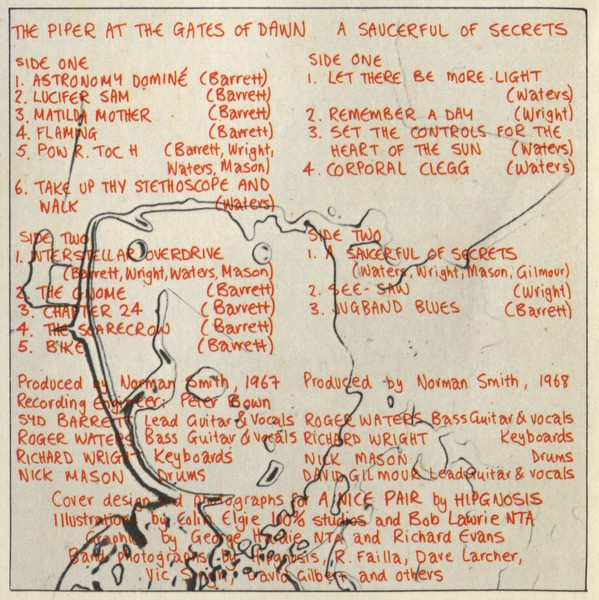 THE PIPER AT THE GATES OF DAWN
SIDE ONE
1. ASTRONOMY DOMINÉ (Barrett)
2. LUCIFER SAM (Barrett)
3. MATILDA MOTHER (Barrett)
4. FLAMING (Barrett)
5. POW R. TOC H (Barrett, Wright,
Waters, Mason)
6. TAKE UP THY STETHOSCOPE AND
WALK (Waters)
SIDE TWO
1. INTERSTELLAR OVERDRIVE
(Barrett, Wright, Waters, Mason)
2. THE GNOME (Barrett)
3. CHAPTER 24 (Barrett)
4. THE SCARECROW (Barrett)
5. BIKE (Barrett)
Produced by Norman Smith, 1967
Recording Engineer: Peter Bown
SYD BARRETT Lead Guitar & Vocals
ROGER WATERS Bass Guitar & vocals
RICHARD WRIGHT Keyboards
NICK MASON Drums
A SAUCERFUL OF SECRETS
SIDE ONE
1. LET THERE BE MORE LIGHT
(Waters)
2. REMEMBER A DAY (Wright)
3. SET THE CONTROLS FOR THE
HEART OF THE SUN (Waters)
4. CORPORAL CLEGG (Waters)
SIDE TWO
1. A SAUCERFUL OF SECRETS
(Waters, Wright, Mason, Gilmour)
2. SEE-SAW (Wright)
3. JUGBAND BLUES (Barrett)
Produced by Norman Smith, 1968
ROGER WATERS Bass Guitar & vocals
RICHARD WRIGHT Keyboards
NICK MASON Drums
DAVID GILMOUR Lead Guitar & vocals
Cover design and photographs for A NICE PAIR by HIPGNOSIS
Illustrations by Colin Elgie 100% studios and Bob Lawrie NTA
Graphics by George Hardie NTA and Richard Evans
Band photographs by Hipgnosis, R. Failla, Dave Larcher,
Vic Singh, David Gilbert and others